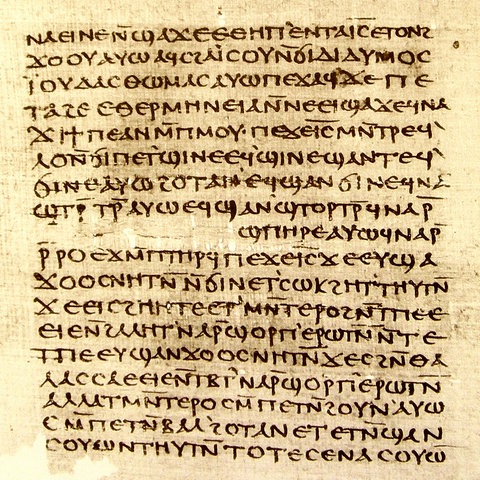 ⲛⲁⲉⲓⲛⲉⲛ̄ϣⲁϫⲉⲉⲑⲏⲡ'ⲉⲛⲧⲁⲓ̅ⲥ̅ⲉⲧⲟⲛϩ
ϫⲟⲟⲩⲁⲩⲱⲁϥⲥϩⲁⲓⲥⲟⲩⲛ̄ϭⲓⲇⲓⲇⲩⲙⲟⲥ
ⲓ̈ⲟⲩⲇⲁⲥⲑⲱⲙⲁⲥⲁⲩⲱⲡⲉϫⲁϥϫⲉⲡⲉ
ⲧⲁϩⲉⲉⲑⲉⲣⲙⲏⲛⲉⲓⲁⲛ̄ⲛⲉⲉⲓϣⲁϫⲉϥⲛⲁ
ϫⲓϯⲡⲉⲁⲛⲙ̄ⲡⲙⲟⲩ·ⲡⲉϫⲉⲓ̅ⲥ̅ⲙⲛ̄ⲧⲣⲉϥ'
ⲗⲟⲛ̄ϭⲓⲡⲉⲧ'ϣⲓⲛⲉⲉϥϣⲓⲛⲉϣⲁⲛⲧⲉϥ'
ϭⲓⲛⲉⲁⲩⲱϩⲟⲧⲁⲛ'ⲉϥϣⲁⲛϭⲓⲛⲉϥⲛⲁ
ϣⲧⲣ̄ⲧⲣ̄ⲁⲩⲱⲉϥϣⲁⲛϣⲧⲟⲣⲧⲣ̄ϥⲛⲁⲣ̄
ϣⲡⲏⲣⲉⲁⲩⲱϥⲛⲁⲣ̄
ⲣ̄ⲣⲟⲉϫⲙ̄ⲡⲧⲏⲣϥ'ⲡⲉϫⲉⲓ̅ⲥ̅ϫⲉⲉⲩϣⲁ
ϫⲟⲟⲥⲛⲏⲧⲛ̄ⲛ̄ϭⲓⲛⲉⲧ'ⲥⲱⲕϩⲏⲧ'ⲧⲏⲩⲧⲛ̄
ϫⲉⲉⲓⲥϩⲏⲏⲧⲉⲉⲧ'ⲙⲛ̄ⲧⲉⲣⲟϩⲛ̄ⲧⲡⲉⲉ
ⲉⲓⲉⲛ̄ϩⲁⲗⲏⲧ'ⲛⲁⲣ̄ϣⲟⲣⲡ'ⲉⲣⲱⲧⲛ̄ⲛ̄ⲧⲉ
ⲧⲡⲉⲉⲩϣⲁⲛϫⲟⲟⲥⲛⲏⲧⲛ̄ϫⲉⲥϩⲛ̄ⲑⲁ
ⲗⲁⲥⲥⲁⲉⲉⲓⲉⲛ̄ⲧⲃⲧ'ⲛⲁⲣ̄ϣⲟⲣⲡ'ⲉⲣⲱⲧⲛ̄
ⲁⲗⲗⲁⲧⲙⲛ̄ⲧⲉⲣⲟⲥⲙ̄ⲡⲉⲧⲛ̄ϩⲟⲩⲛ'ⲁⲩⲱ
ⲥⲙ̄ⲡⲉⲧⲛ̄ⲃⲁⲗ'ϩⲟⲧⲁⲛⲉⲧⲉⲧⲛ̄ϣⲁⲛ
ⲥⲟⲩⲱⲛⲧⲏⲩⲧⲛ̄ⲧⲟⲧⲉⲥⲉⲛⲁⲥⲟⲩⲱ